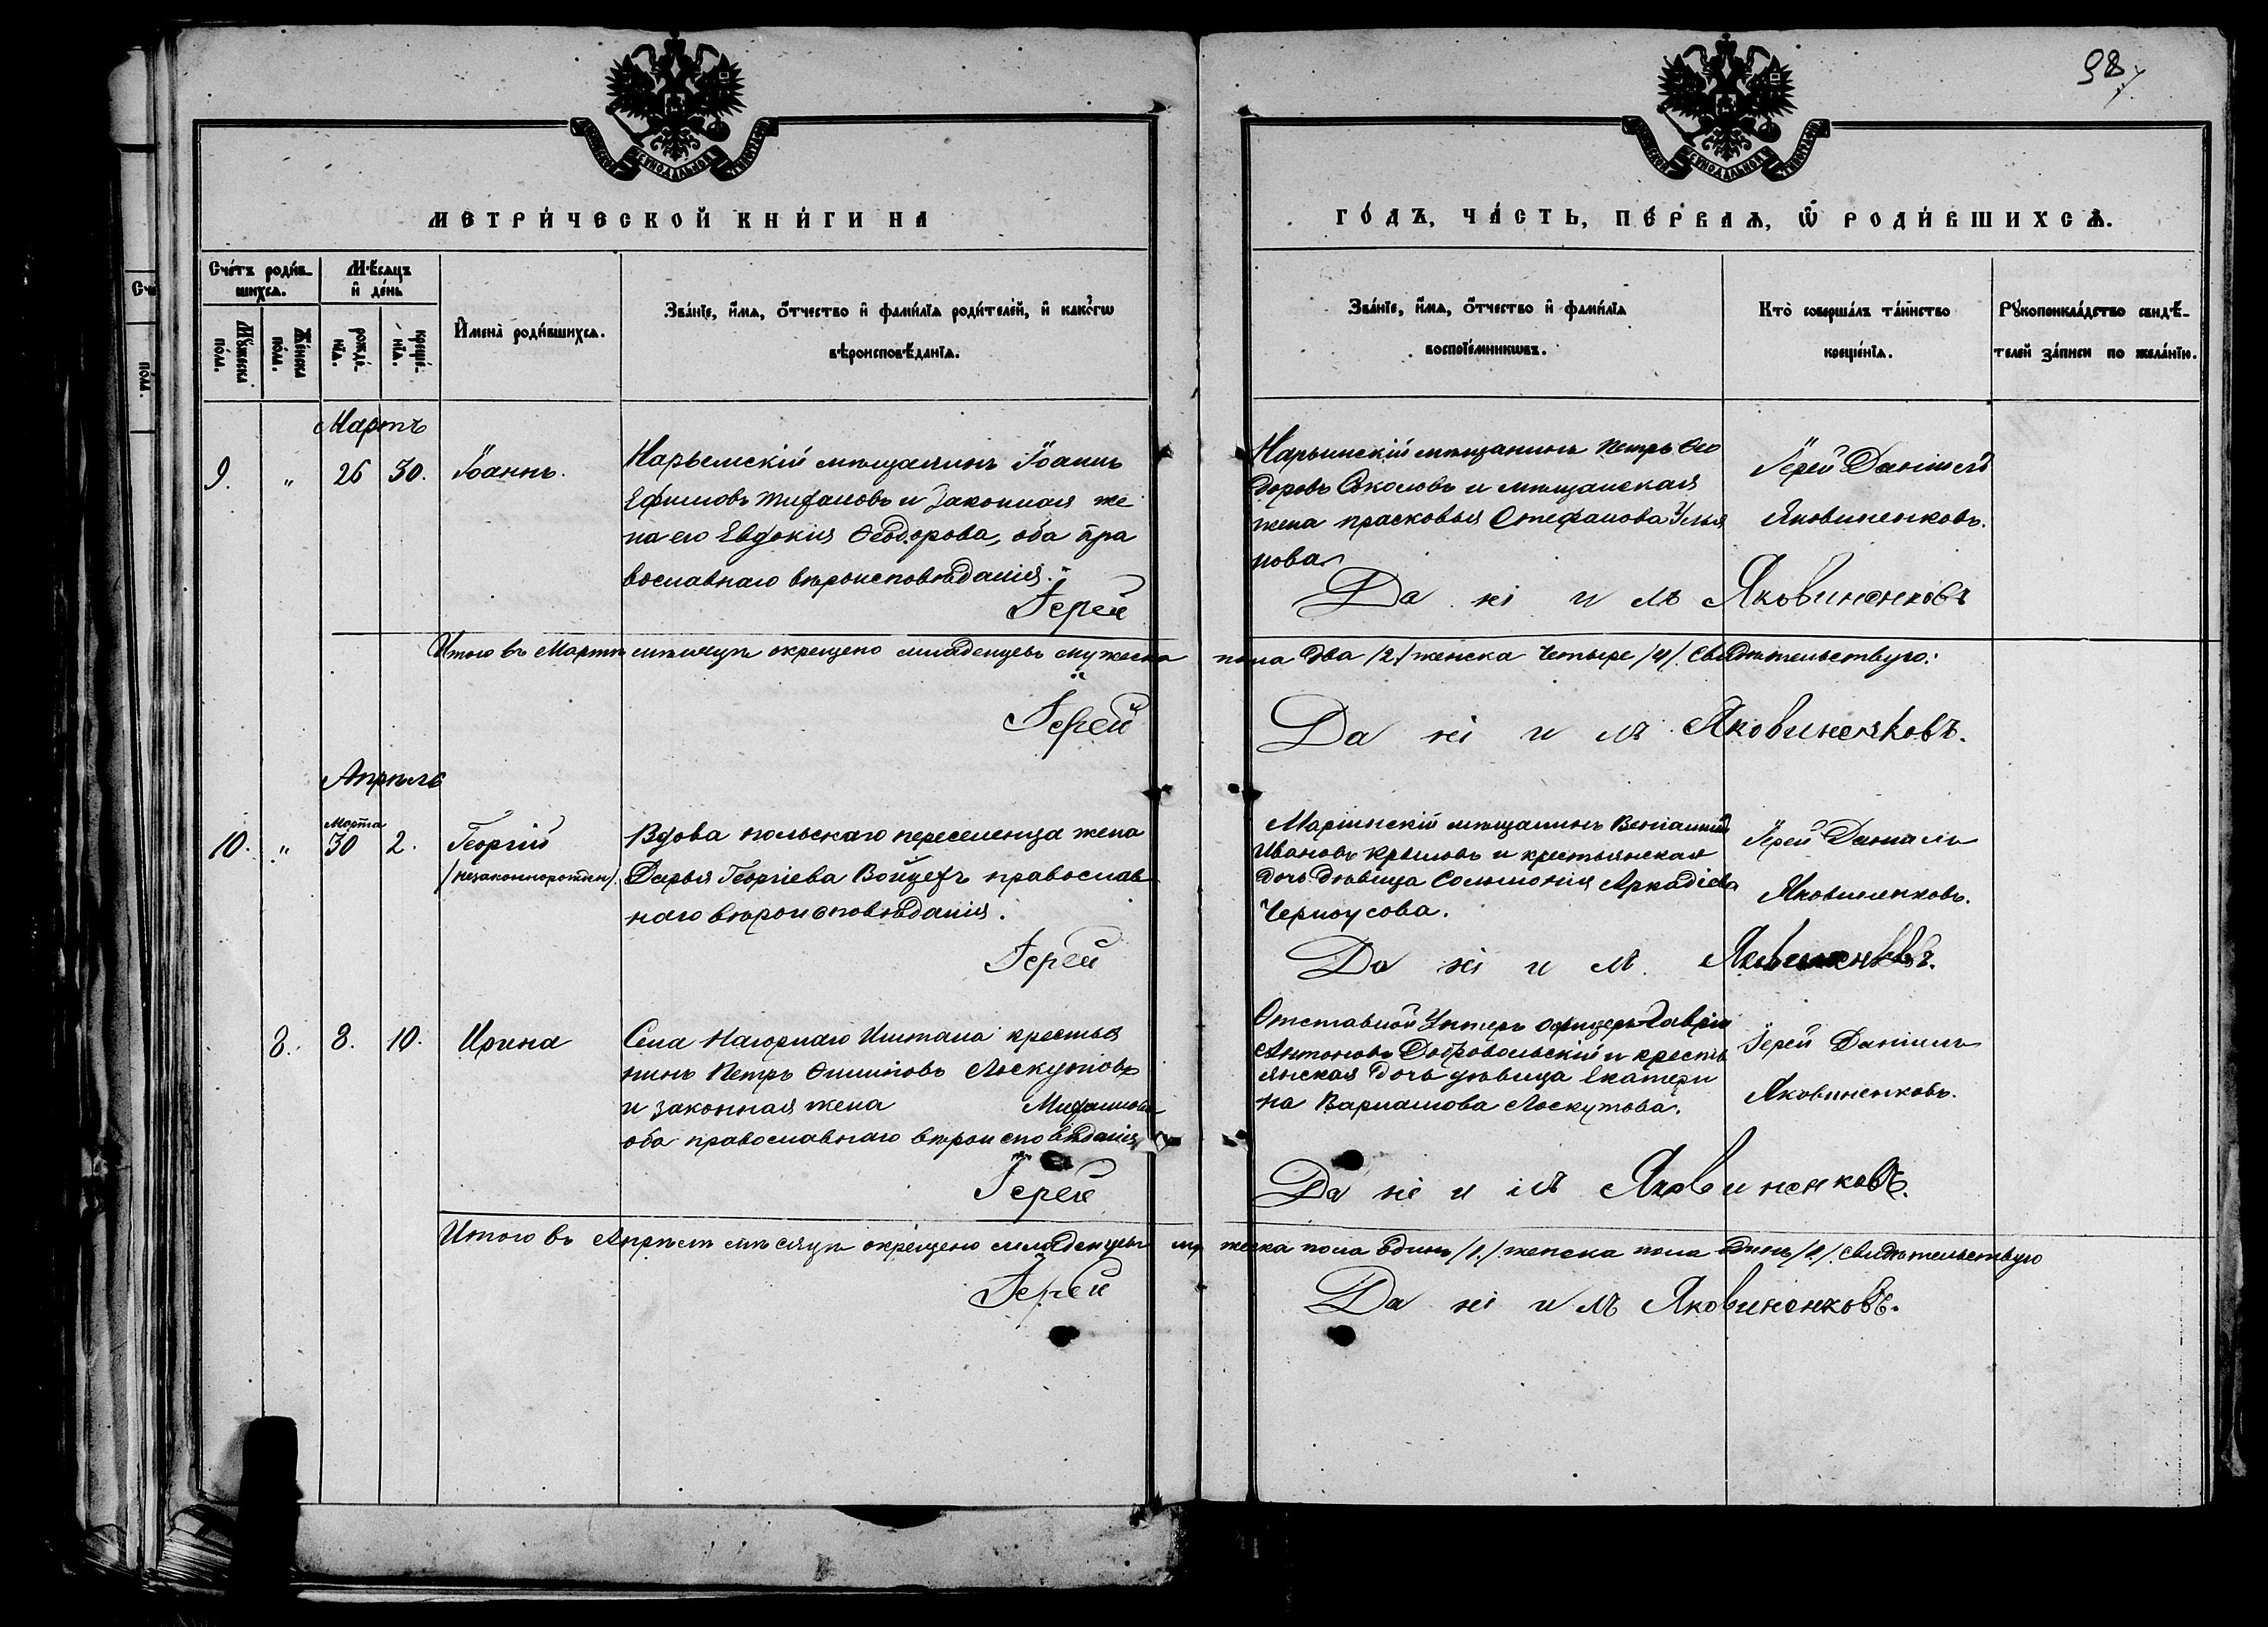 98
МЕТРИ́ЧЕСКОЙ КНИ́ГИ НА
ГО́ДЪ, ЧА́СТЬ, ПЕ́РВАѦ, Ѽ РОДИ́ВШИХСѦ.
Сче́тъ роди́в-
шихсѧ.
Мѣ́сѧцъ
и҆ де́нь
Мꙋ́жеска
по́ла.
Же́нска
по́ла.
рожде́-
нїѧ.
креще́-
нїѧ.
И҆мена̀ роди́вшихсѧ.
Зва́нїе, и҆́мѧ, ѻ҆́тчество и҆ фами́лїѧ роди́телей, и҆ како́гѡ
вѣроисповѣ́данїѧ.
Зва́нїе, и҆́мѧ, ѻ҆́тчество и҆ фами́лїѧ
воспрїе́мникѡвъ.
Кто̀ соверша́лъ та́инство
креще́нїѧ.
Рꙋкоприкла́дство свидѣ́-
телей за́писи по жела́нїю.
Мартъ
9. " 26 30. Іоаннъ.
Нарымскій мѣщанинъ Іоаннъ
Ефимовъ и законная же
на его Евдокия Ѳеодорова, оба пра
вославнаго вѣроисповѣданія.
Іерей
Нарымскій мѣщанинъ Петръ Ѳео
доровъ Соколовъ и мѣщанская
жена Прасковья Стефанова Улья
нова
Даніилъ Яковиненковъ
Іерей Даніилъ
Яковиненковъ.
Итого въ Мартѣ мѣсяцѣ окрещено младенцевъ мужеска пола два /2/ женска четыре /4/. Свидѣтельствую:
Іерей Даніилъ Яковиненковъ.
Апрѣль
10. " Марта 30 2. Георгій
/незаконнорожден/.
Вдова польскаго переселенца жена
Дарья Георгіева Войцехъ православ
наго вѣроисповѣданія.
Іерей
Маріинскій мѣщанинъ Веніаминъ
Ивановъ Крыловъ и крестьянская
дочь дѣвица Соломонія Аркадіева
Черноусова.
Даніилъ Яковиненковъ.
Іерей Даніилъ
Яковиненковъ.
8. 8. 10. Ирина
Села Нагорнаго Иштана крестья
нинъ Петръ Лоскутовъ
и законная жена
оба православнаго вѣроисповѣданія
Іерей
Отставной Унтеръ офицеръ Гавріилъ
Антоновъ Добровольскій и кресть
янская дочь дѣвица Екатери
на Варлаамова Лоскутова.
Даніилъ Яковиненковъ.
Іерей Даніилъ
Яковиненковъ.
Итого въ Апрѣлѣ мѣсяцѣ окрещено младенцевъ мужеска пола одинъ /1./ женска пола одинъ /1/. Свидѣтельствую
Іерей Даніилъ Яковиненковъ.